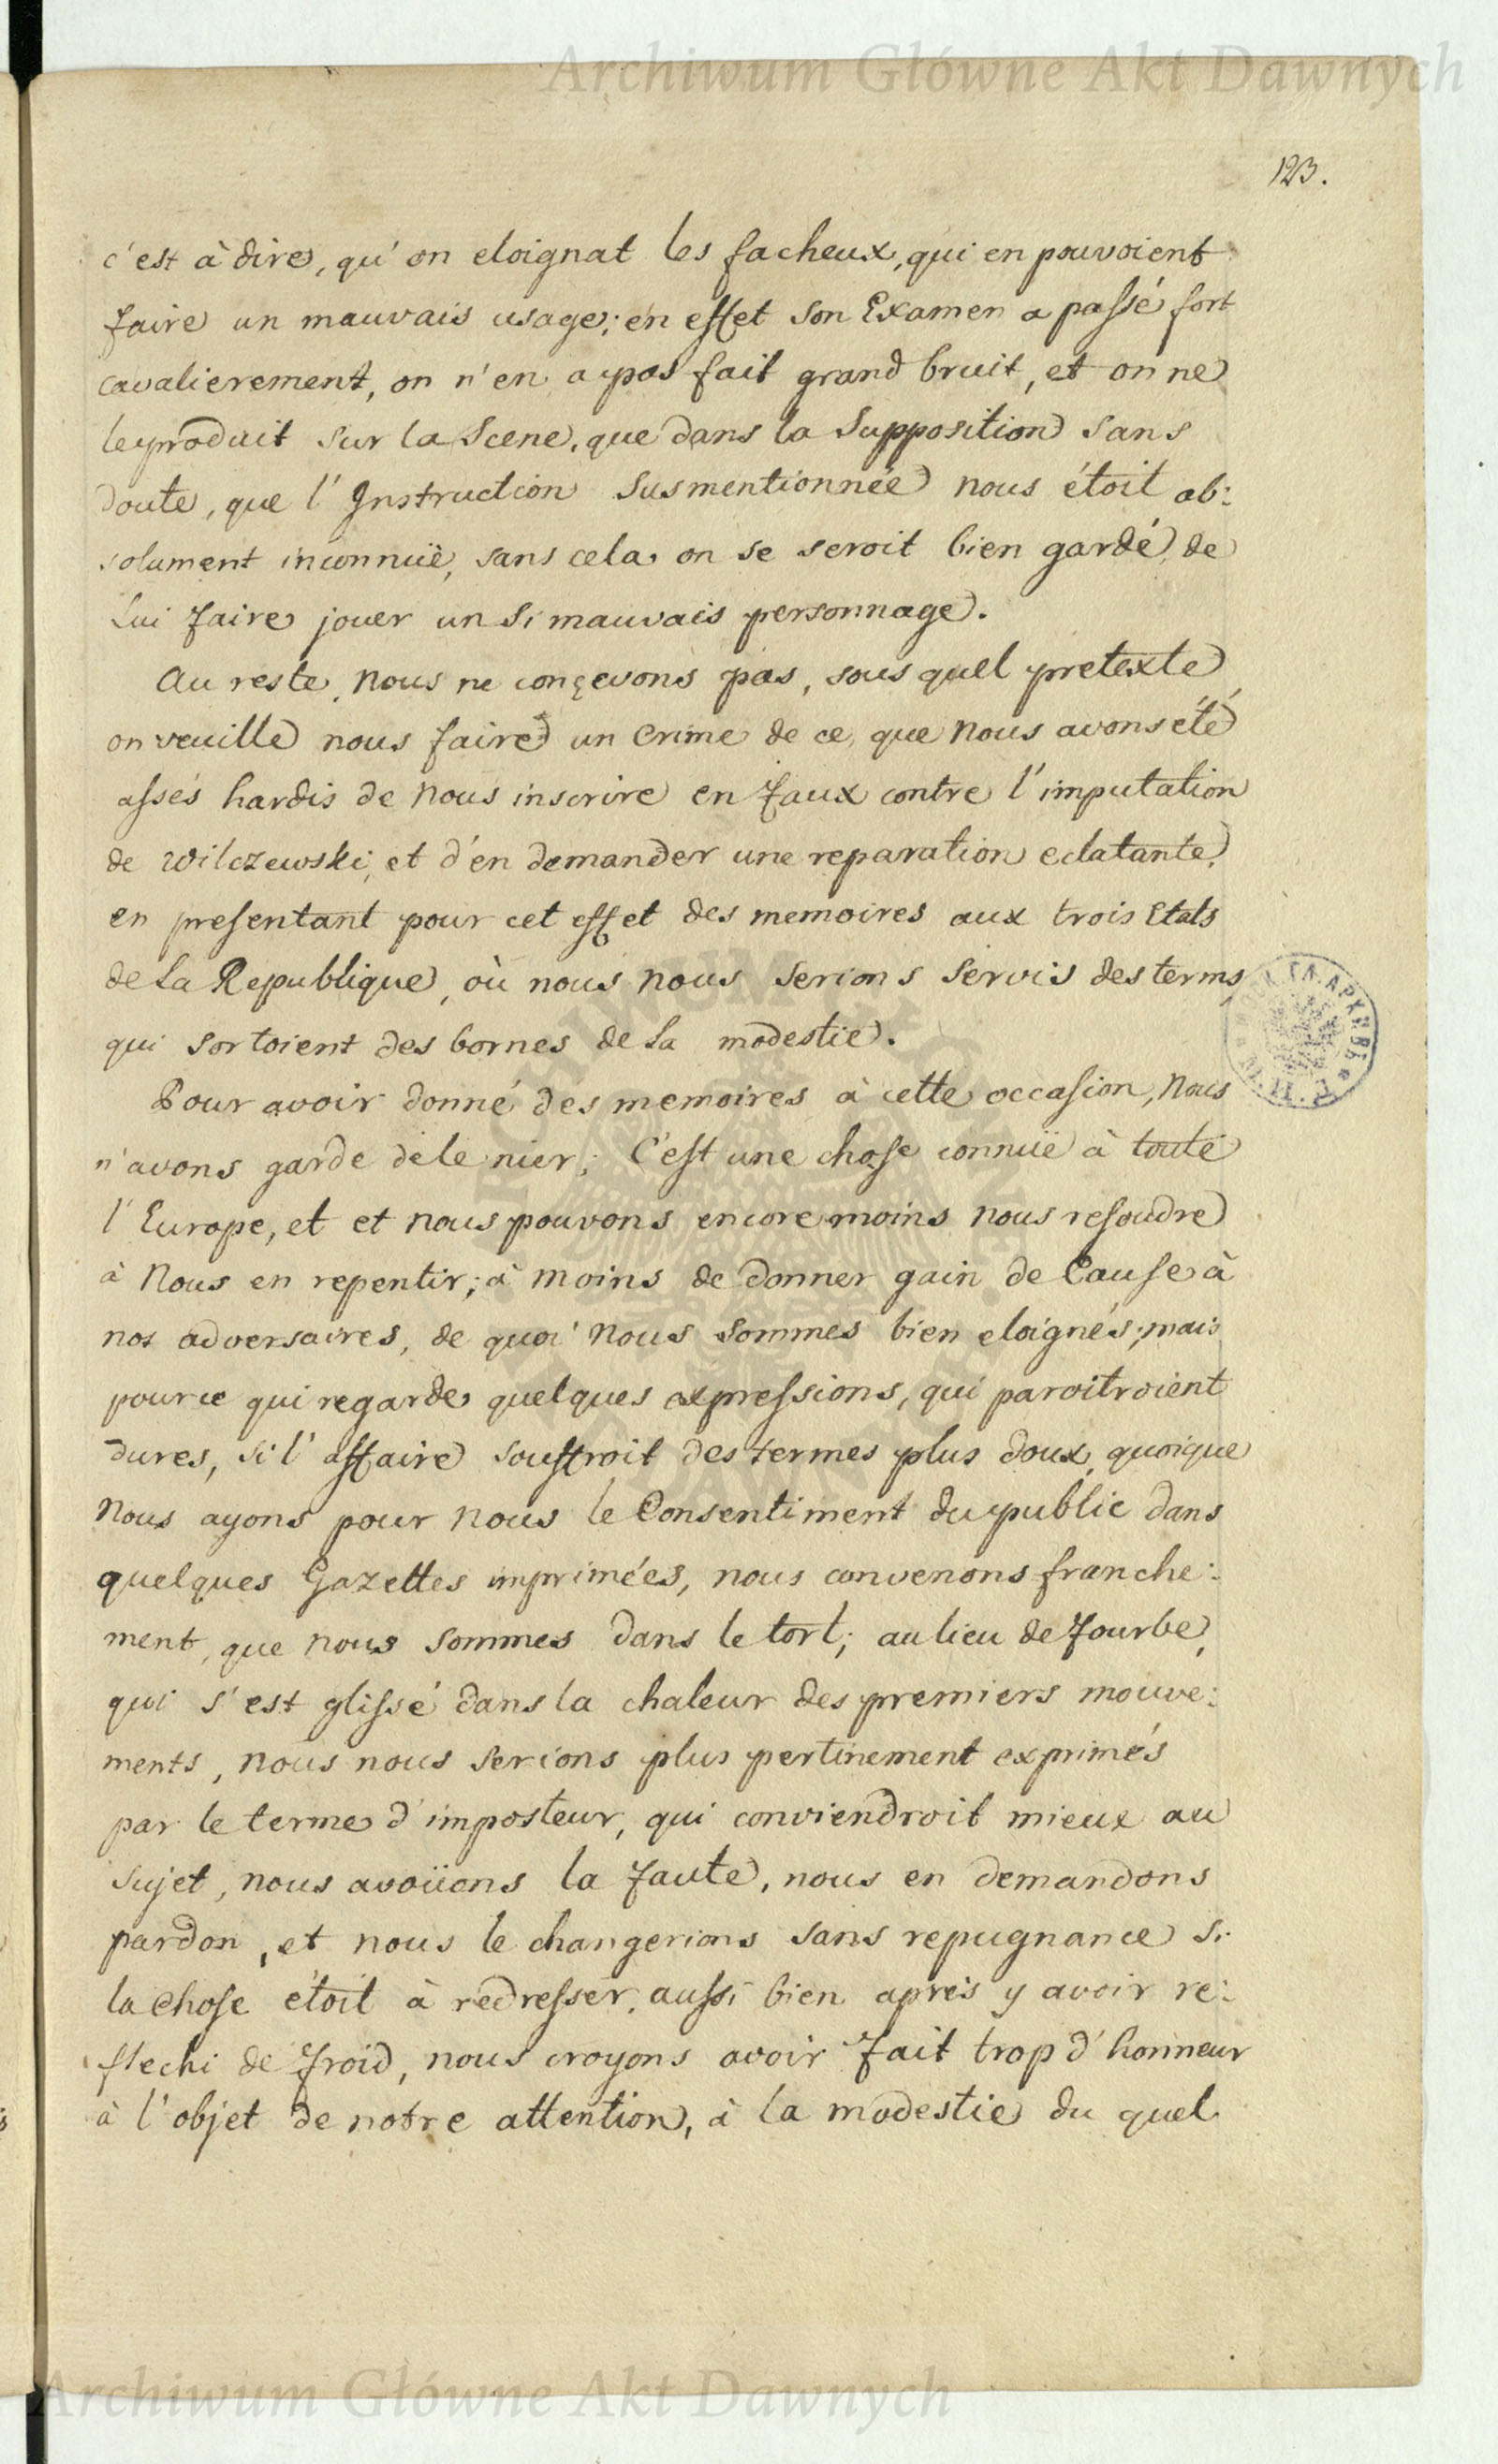 Archiwum Główne Akt Dawnych
123.
c'est à dire, qu'on eloignat les facheux, qui en pouvoient
faire un mauvais usage; en effet son Examen a passé fort
cavalierement, on n'en a pas fait grand bruit, et on ne
le produit sur la Scene, que dans la Supposition sans
doute, que l'Instruction susmentionnée nous étoit ab:
solument inconnuë, sans cela on se seroit bien gardé de
Lui faire jouer un si mauvais personnage.
Au reste, nous ne conçevons pas, sous quel pretexte
on veuille nous faire un crime de ce, que nous avons été
assés hardis de nous inscrire en faux contre l'imputation
de Wilczewski, et d'en demander une reparation eclatante,
en presentant pour cet effet des memoires aux trois Etats
de la Republique, où nous nous serions servis des terms,
qui sortoient des bornes de la modestie.
Pour avoir donné des memoires à cette occasion, nous
n'avons garde de le nier; C'est une chose connuë à toute
l'Europe, et et nous pouvons encore moins nous resoudre
à nous en repentir; à moins de donner gain de Cause à
nos adversaires, de quoi nous sommes bien eloignés; mais
pour ce qui regarde quelques expressions, qui paroitroient
dures, si l'affaire souffroit des termes plus doux, quoique
nous ayons pour nous le Consentiment du public dans
quelques Gazettes imprimées, nous convenons franche:
ment, que nous sommes dans le tort; au lieu de fourbe,
qui s'est glissé dans la chaleur des premiers mouve:
ments, nous nous serions plus pertinement exprimés
par le terme d'imposteur, qui conviendroit mieux au
sujet, nous avoüons la faute, nous en demandons
pardon, et nous le changerions sans repugnance si
la chose étoit à redresser, aussi bien après y avoir re:
flechi de froid, nous croyons avoir fait trop d'honneur
à l'objet de notre attention, à la modestie du quel
Archiwum Główne Akt Dawnych